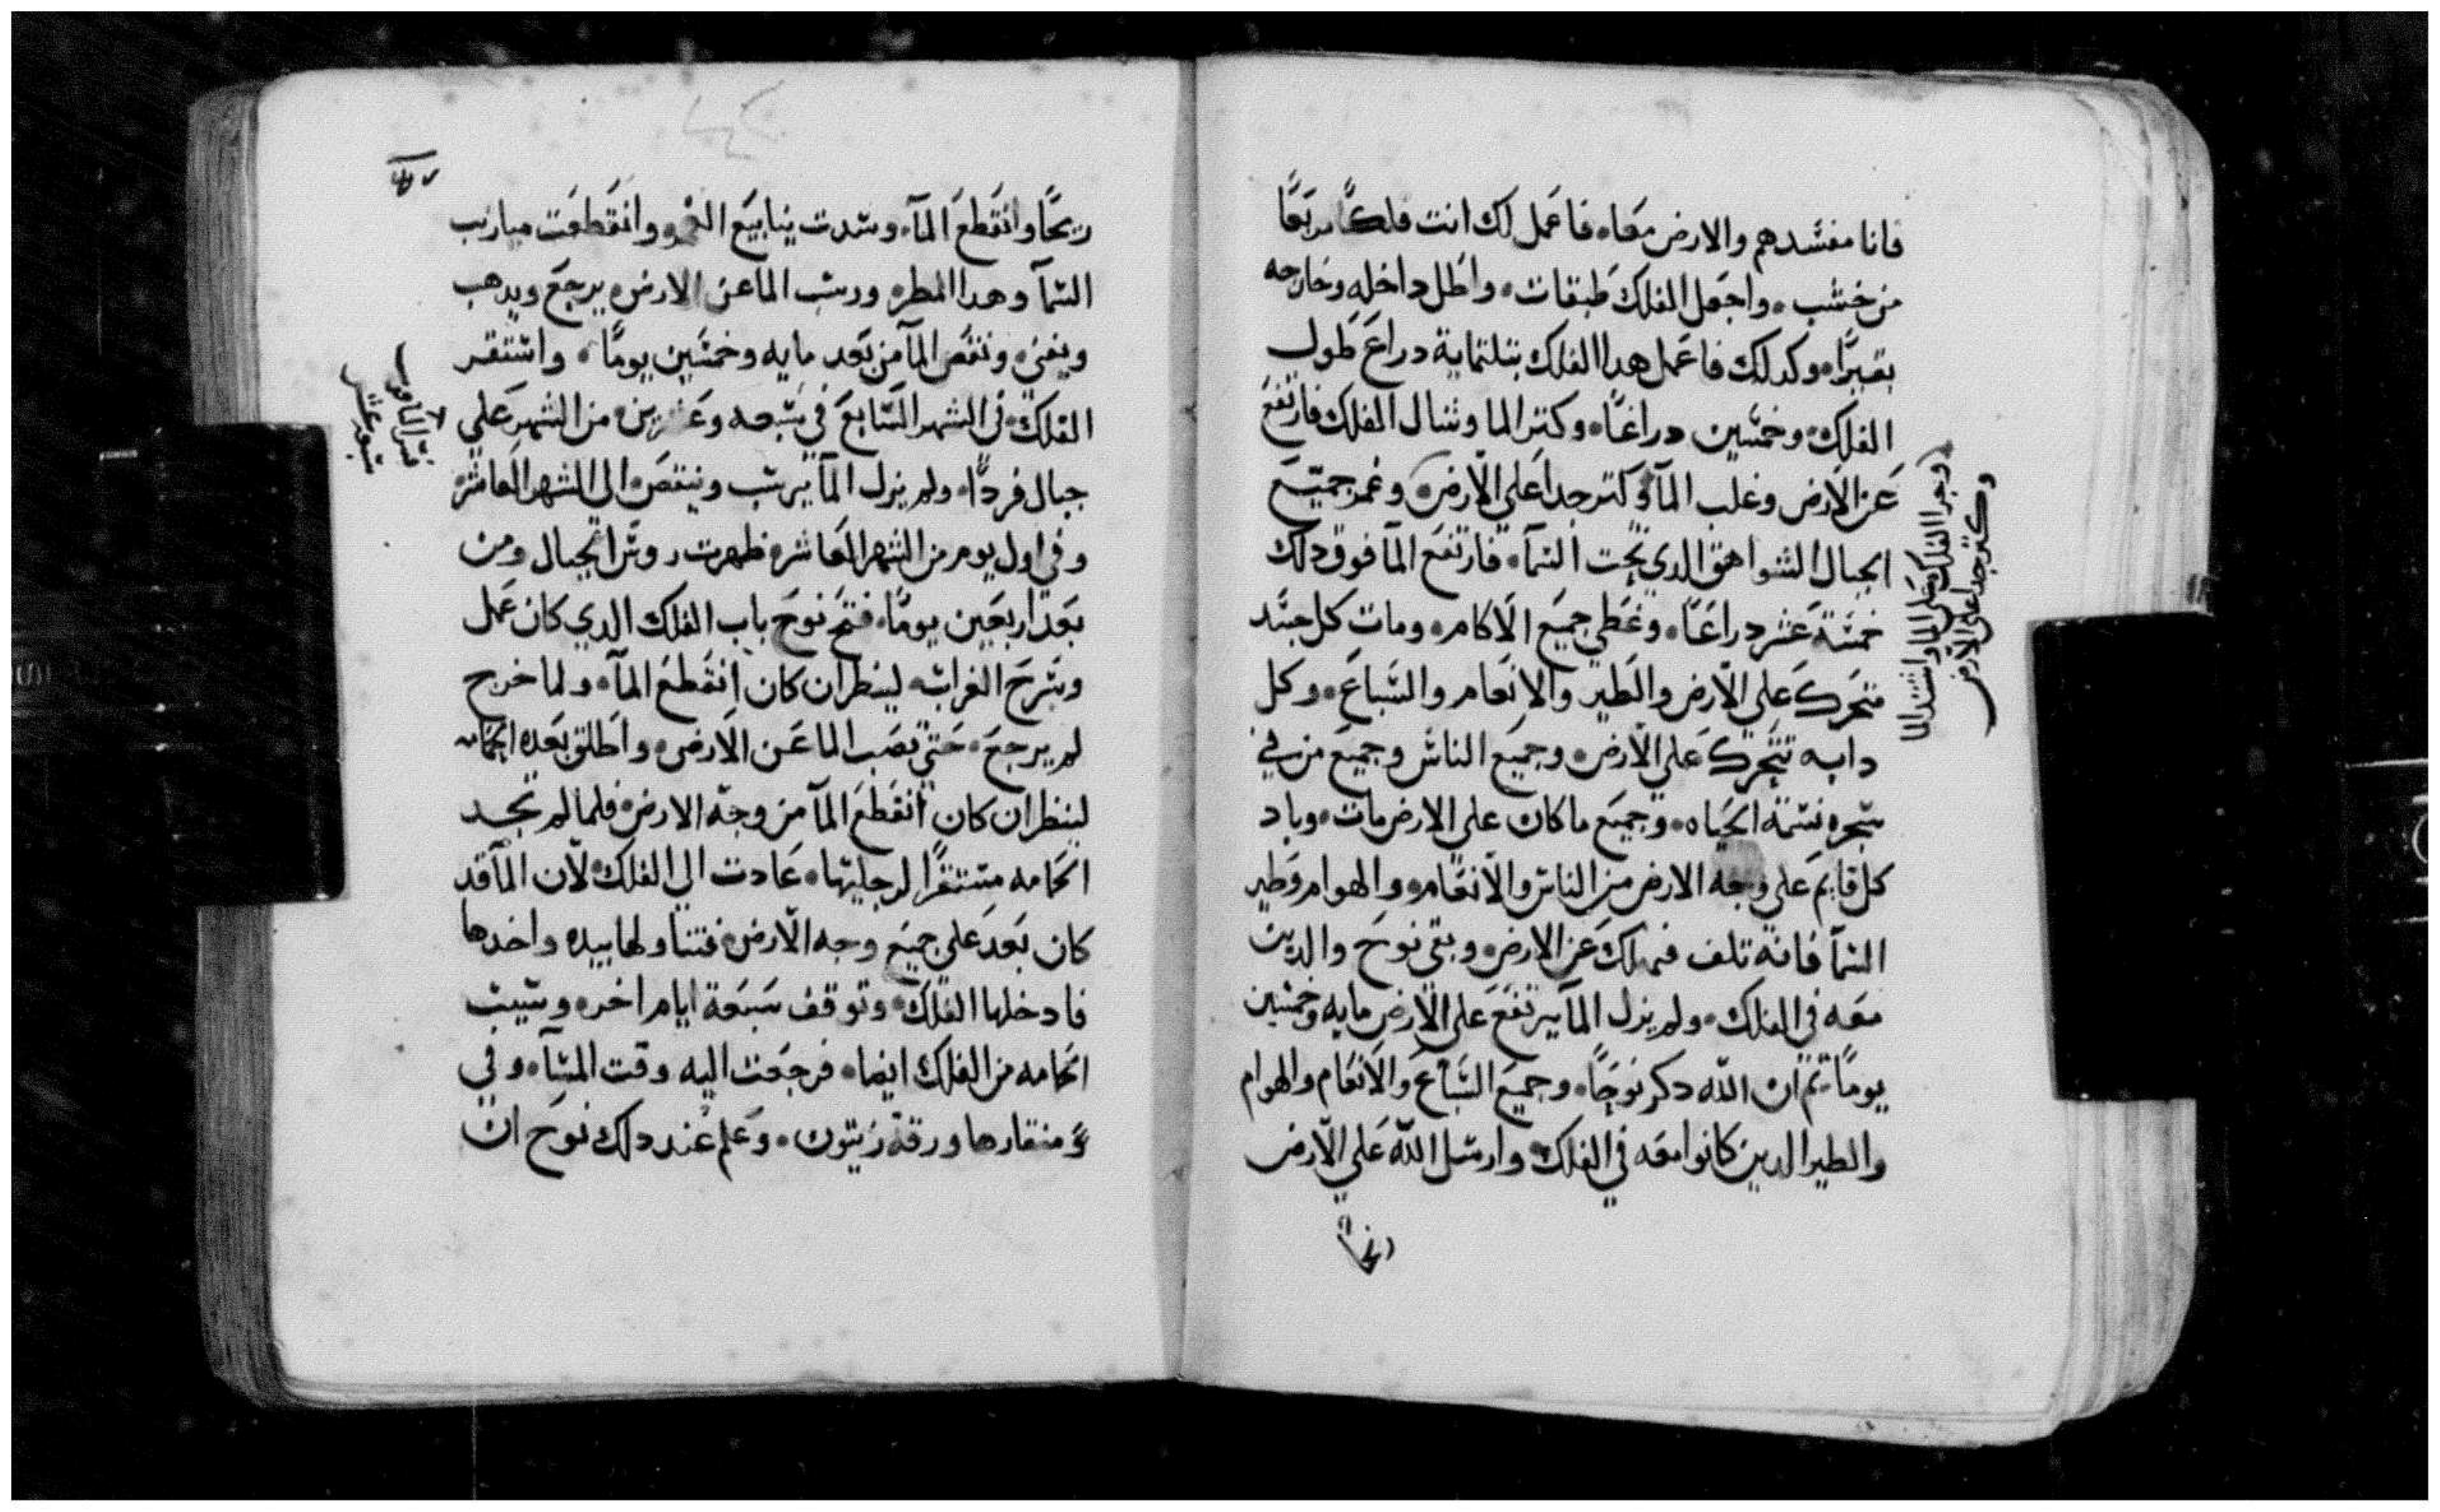 فانا مفسدهم والارض معاه فاعمل لك انت فلكًا مربعًا
من خشب، واجعل الفلك طبقات، واطل داخله وخارجه
بقيرًا، وكدلك فاعمل هدا الفلك بتلتماية دراع طول
الفلك، وخمسين دراعًا، وكتر الما وشال الفلك فارتفع
عن الارض وغلب المآ وكتر جدا علي الارض، وغمر جميع
الجبال الشواهق الدي تحت السمآ، فارتفع المآ فوق دلك
خمسة عشر دراعًا، وغطي جميع الاكام، ومات كل جسد
متحرك علي الارض والطير والانعام والسباع، وكل
دابه تتحرك علي الارض، وجميع الناس وجميع من في
نسمة الحياه، وجميع ما كان علي الارض مات، وباد
كل قايم علي وجه الارض من الناس والانعام، والهوام وطير
السمآ فانه تلف فهلك عن الارض، وبقي نوح والدين
معه في الفلك، ولم يزل المآ يرتفع علي الارض مايه وخمسين
يومًا، تم ان الله دكر نوحًا، وجميع السباع والانعام والهوام
والطير الدين كانوا معه في الفلك، وارسل الله علي الارض
ريحًا
وجرا الفلك علي الما واشتد الما
وكتر جدا علي الارض
ريحًا وانقطع المآ، وسدت ينابيع وانقطعت ميازيب
السمآ وهدا المطر، ورسب الما عن الارض، يرجع ويدهب
ويفني، ونقص المآ من بعد مايه وخمسين يومًا، واستقر
الفلك، في الشهر السابع في سبعه وعشرين، من الشهر علي
جبال فردًا، ولم يزل المآ يرسب وينقص، الي الشهر العاشر
وفي اول يوم من الشهر العاشر، ظهرت روس الجبال ومن
بعد اربعين يومًا، فتح نوح باب الفلك الدي كان عمل
وسرح الغراب، لينظر ان كان انقطع المآ، ولما خرج
لم يرجع، حتي نصب الما عن الارض، واطلق بعده الحمامه
لينظر ان كان انقطع المآ من وجه الارض، فلما لم تجد
الحمامه مستقرًا لرجليها، عادت الي الفلك، لان المآ قد
كان بعد علي جميع وجه الارض، فتناولها بيده واخدها
فادخلها الفلك، وتوقف سبعة ايام اخر، وسيب
الحمامه من الفلك ايضا، فرجعت اليه وقت المسآ، وفي
منقارها ورقة زيتون، وعلم عند دلك نوح ان